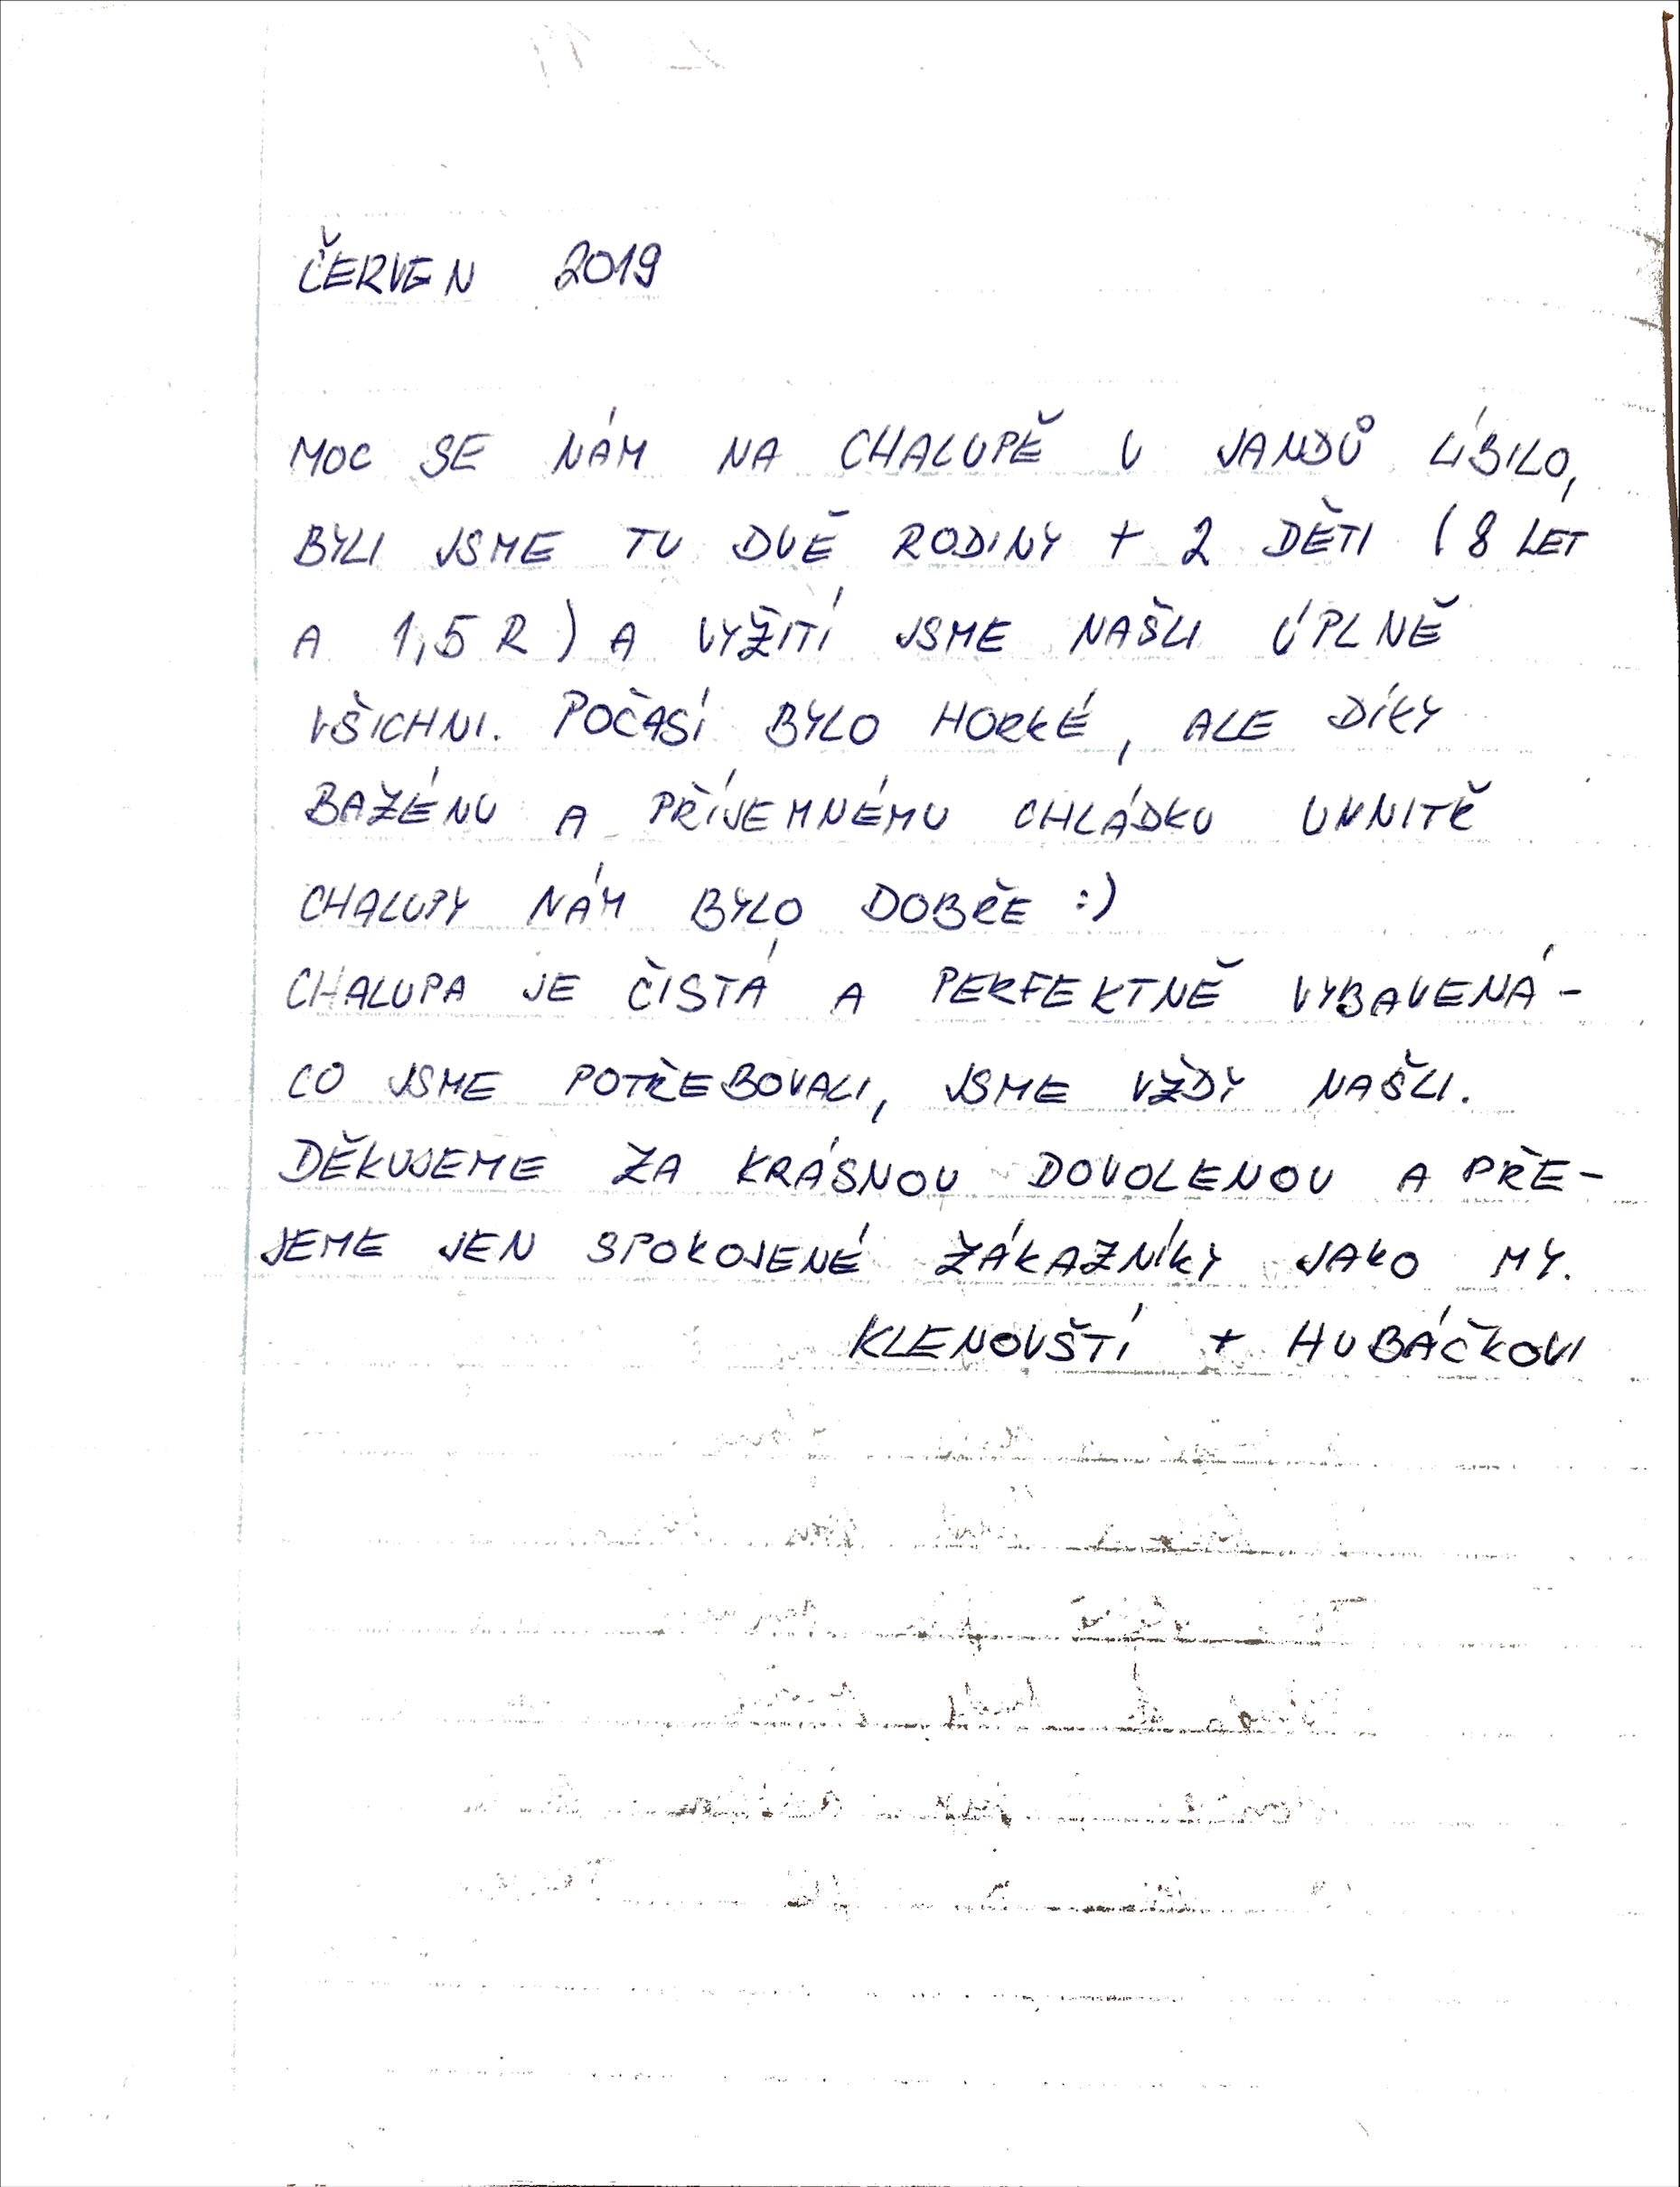 ČERVEN 2019
MOC SE NÁM NA CHALUPĚ U JANDŮ LÍBILO,
BYLI JSME TU DVĚ RODINY + 2 DĚTI (8 LET
A 1,5 R) A VYŽITÍ JSME NAŠLI ÚPLNĚ
VŠICHNI. POČASÍ BYLO HORKÉ, ALE DÍKY
BAZÉNU A PŘÍJEMNÉMU CHLÁDKU UVNITŘ
CHALUPY NÁM BYLO DOBŘE :)
CHALUPA JE ČISTÁ A PERFEKTNĚ VYBAVENÁ -
CO JSME POTŘEBOVALI, JSME VŽDY NAŠLI.
DĚKUJEME ZA KRÁSNOU DOVOLENOU A PŘE-
JEME JEN SPOKOJENÉ ZÁKAZNÍKY JAKO MY.
KLENOVŠTÍ + HUBÁČKOVI